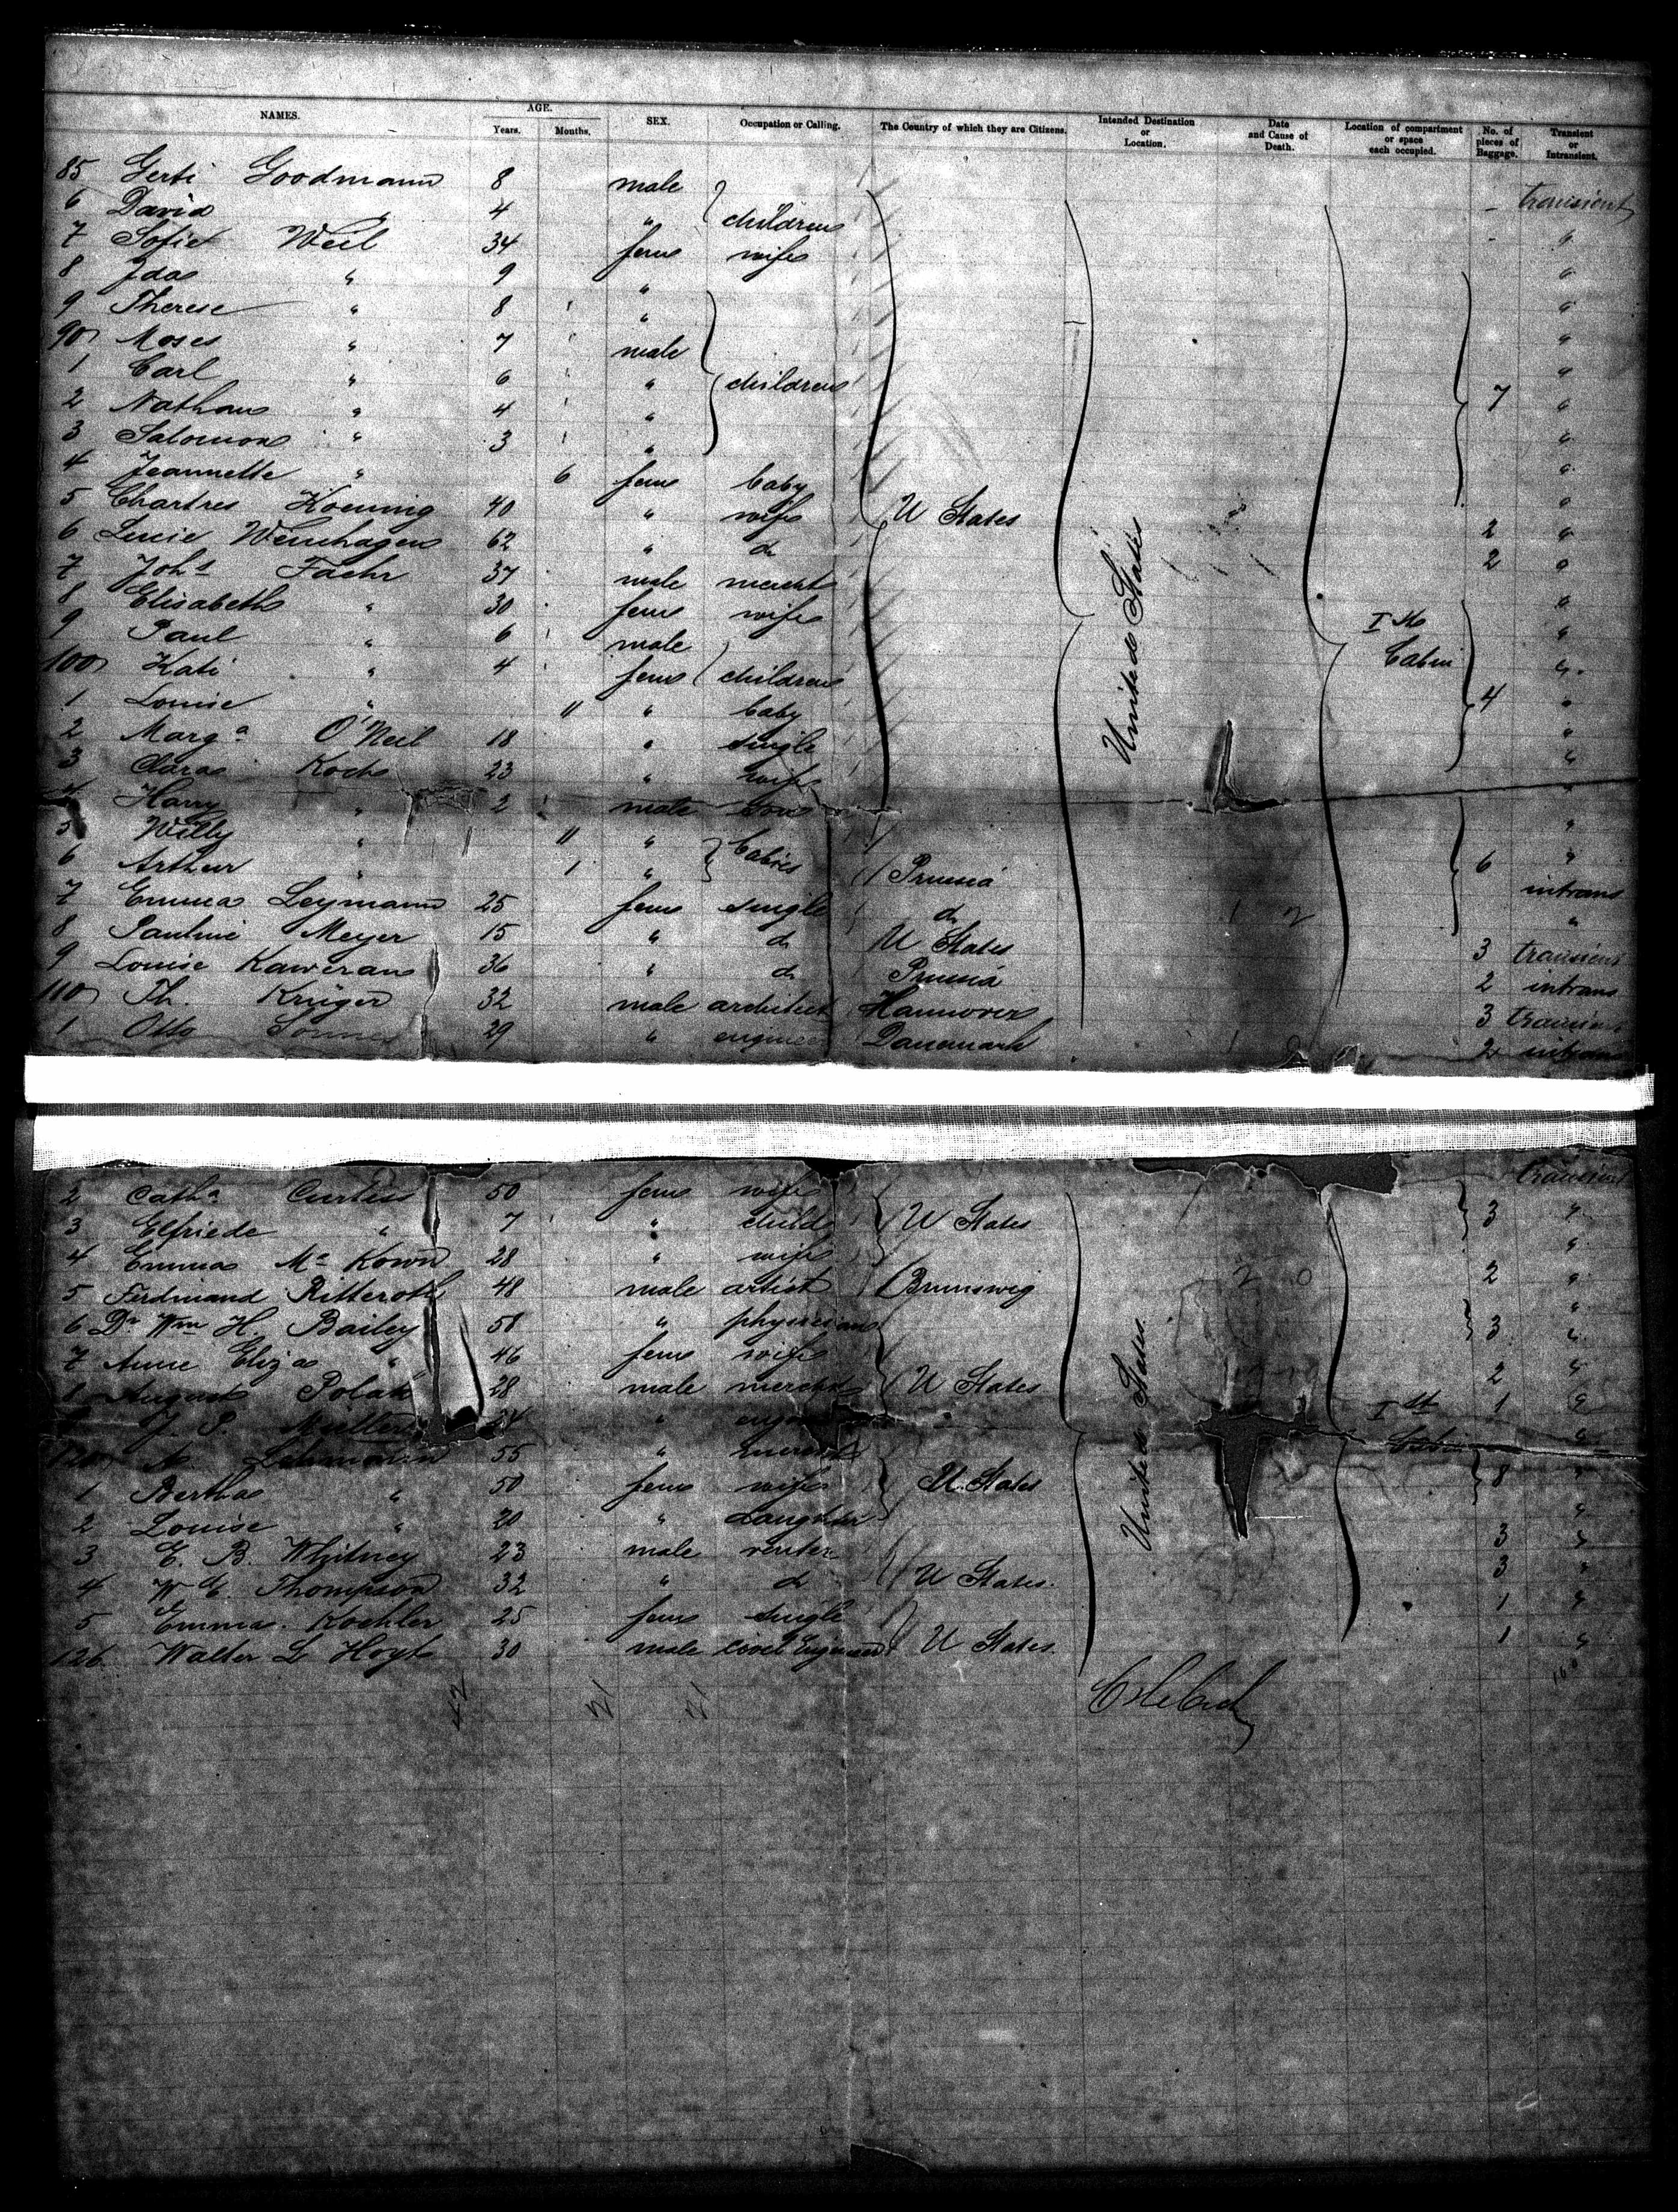 NAMES. AGE. Years. Months. SEX. Occupation or Calling. The Country of which they are Citizens. Intended Destination or Location. Date and Cause of Death. Location of compartment or space each occupied. No. of pieces of Baggage. Transient or Intransient.
85 Gerti Goodmann 8 male transient
6 David " 4 " children "
7 Sofie Weil 34 fem wife "
8 Ida " 9 " "
9 Therese " 8 " "
90 Moses " 7 male "
1 Carl " 6 " children "
2 Nathan " 4 " 7 "
3 Salomon " 3 " "
4 Jeannette " 6 fem baby "
5 Chartres Koennig 40 " wife U States 2 "
6 Lucie Wenchagen 62 " do 2 "
7 Johs Faehr 37 male mercht "
8 Elisabeth " 30 fem wife Ist "
9 Paul " 6 male Cabin "
100 Kati " 4 fem children "
1 Louise " 11 " baby 4 "
2 Marga O'Neil 18 " single "
3 Clara Koch 23 " wife "
4 Harry " 2 male son "
5 Willy " 11 " babies "
6 Arthur " 1 " Prussia 6 intrans
7 Emma Leymann 25 fem single do "
8 Pauline Meyer 15 " do U States 3 transient
9 Louise Kaweran 36 " do Prussia 2 intrans
110 Th. Krüger 32 male architect Hannover 3 transient
1 Otto 29 " engineer Danemark 2 intrans
United States
2 Catha Curtiss 50 fem wife transient
3 Elfriede " 7 " child U States 3 "
4 Emma Mc Kown 28 " wife "
5 Ferdinand Ritteroth 48 male artist Brunswig 2 "
6 Dr Wm H. Bailey 58 " physician 3 "
7 Anne Eliza " 46 fem wife "
8 August Polak 28 male mercht U States 2 "
J. P. " Ist 1 "
120 A. Lehmann 55 " mercht Cabin "
1 Bertha " 50 fem wife U. States 8 "
2 Louise " 20 " daughter "
3 E. B. Whitney 23 male renter 3 "
4 W. E. Thompson 32 " do U States. 3 "
5 Emma Koehler 25 fem single 1 "
126 Walter L Hoyt 30 male civil Engineer U States. 1 "
United States.
42 21 21